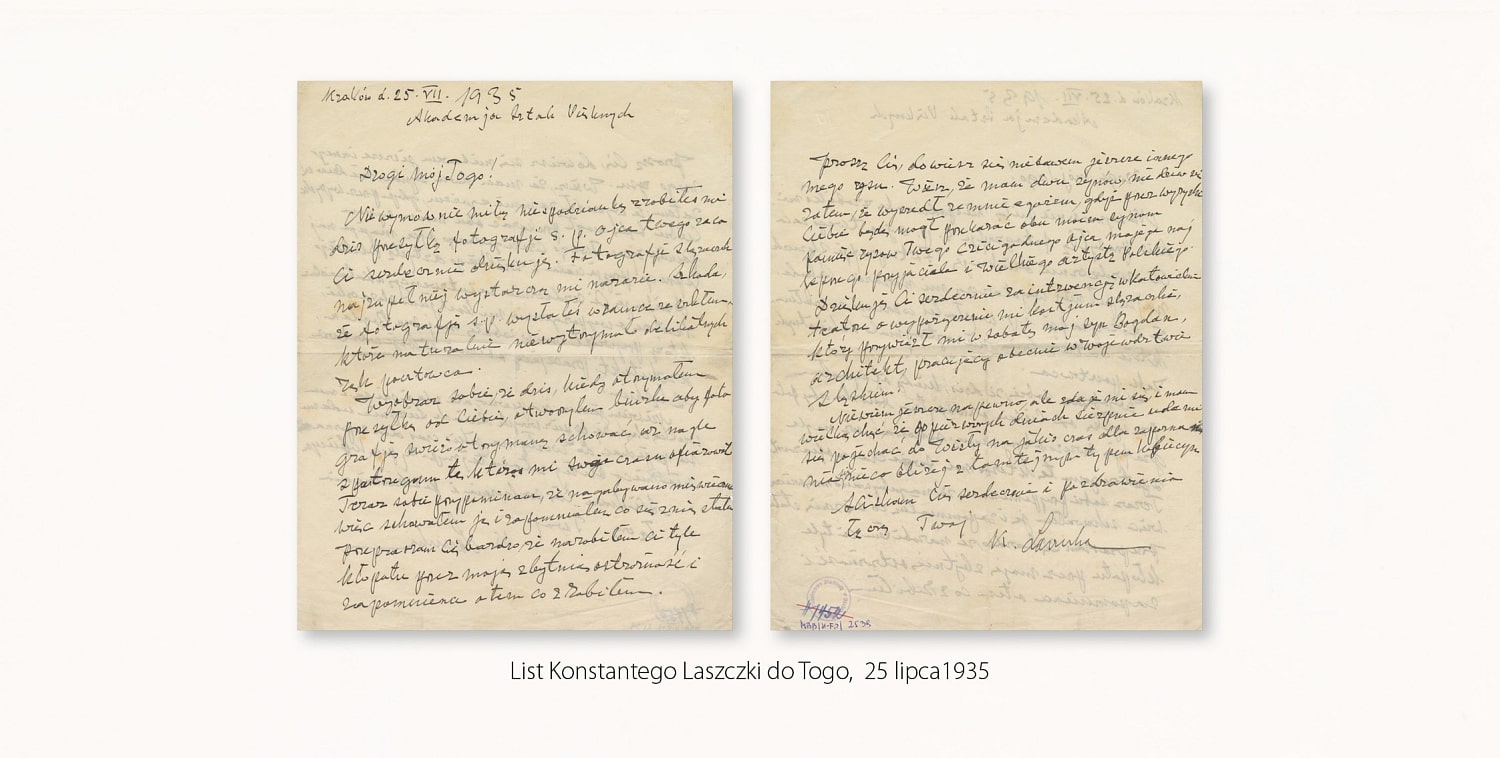 Kraków d. 25. VII. 1935
Akademja Sztuk Pięknych
Drogi mój Togo!
Niewymownie miłą niespodziankę zrobiłeś mi
dziś przesyłką fotografji ś. p. ojca twego za co
Ci serdecznie dziękuję. Fotografje
najzupełniej wystarczą mi narazie. Szkoda,
że fotografję ś.p. wysłałeś w ramce ze szkłem,
które naturalnie nie wytrzymało delikatnych
rąk pocztowca.
Wyobraź sobie, że dziś, kiedy otrzymałem
przesyłkę od Ciebie, otworzyłem biurko aby foto
grafję świeżo otrzymaną schować, aż nagle
spostrzegam tę, którą mi swego czasu ofiarował
Teraz sobie przypominam, że nagabywano mię
więc schowałem ją i zapomniałem co się z nią stało
przepraszam Cię bardzo, że narobiłem Ci tyle
kłopotu przez moją zbytnią ostrożność i
zapomnienie o tem co zrobiłem.
proszę Cię, dowiesz się niebawem jeszcze innego
mego rysu. Wiesz, że mam dwu synów, nie dziw się
zatem, że wyszedł ze mnie egoizm, gdyż przez
Ciebie będę mógł przekazać obu moim synom
pamięć rysów Twego czcigodnego ojca mojego naj
lepszego przyjaciela i wielkiego artysty Polskiego.
Dziękuję Ci serdecznie za interwencję w katowickim
teatrze o wypożyczenie mi kostjum ślązaczki,
który przywiózł mi w sobotę mój syn Bogdan,
architekt, pracujący obecnie w Województwie
Śląskim.
Nie wiem jeszcze na pewno, ale zdaje mi się, i mam
wielką chęć, że po pierwszych dniach sierpnia uda mi
się pojechać do Wisły na jakiś czas dla zapoznania
nieco bliżej z tamtejszym typem kobiecym
Ściskam Cię serdecznie i pozdrowienia
łączę Twój
K. Laszczka
1452
MBB/H-FJ/ 2538
List Konstantego Laszczki do Togo, 25 lipca1935